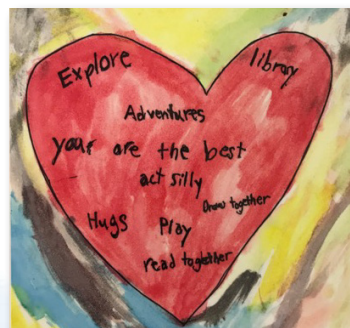 Explore
library
Adventures
your are the best
act silly
Draw together
Hugs
Play
read together